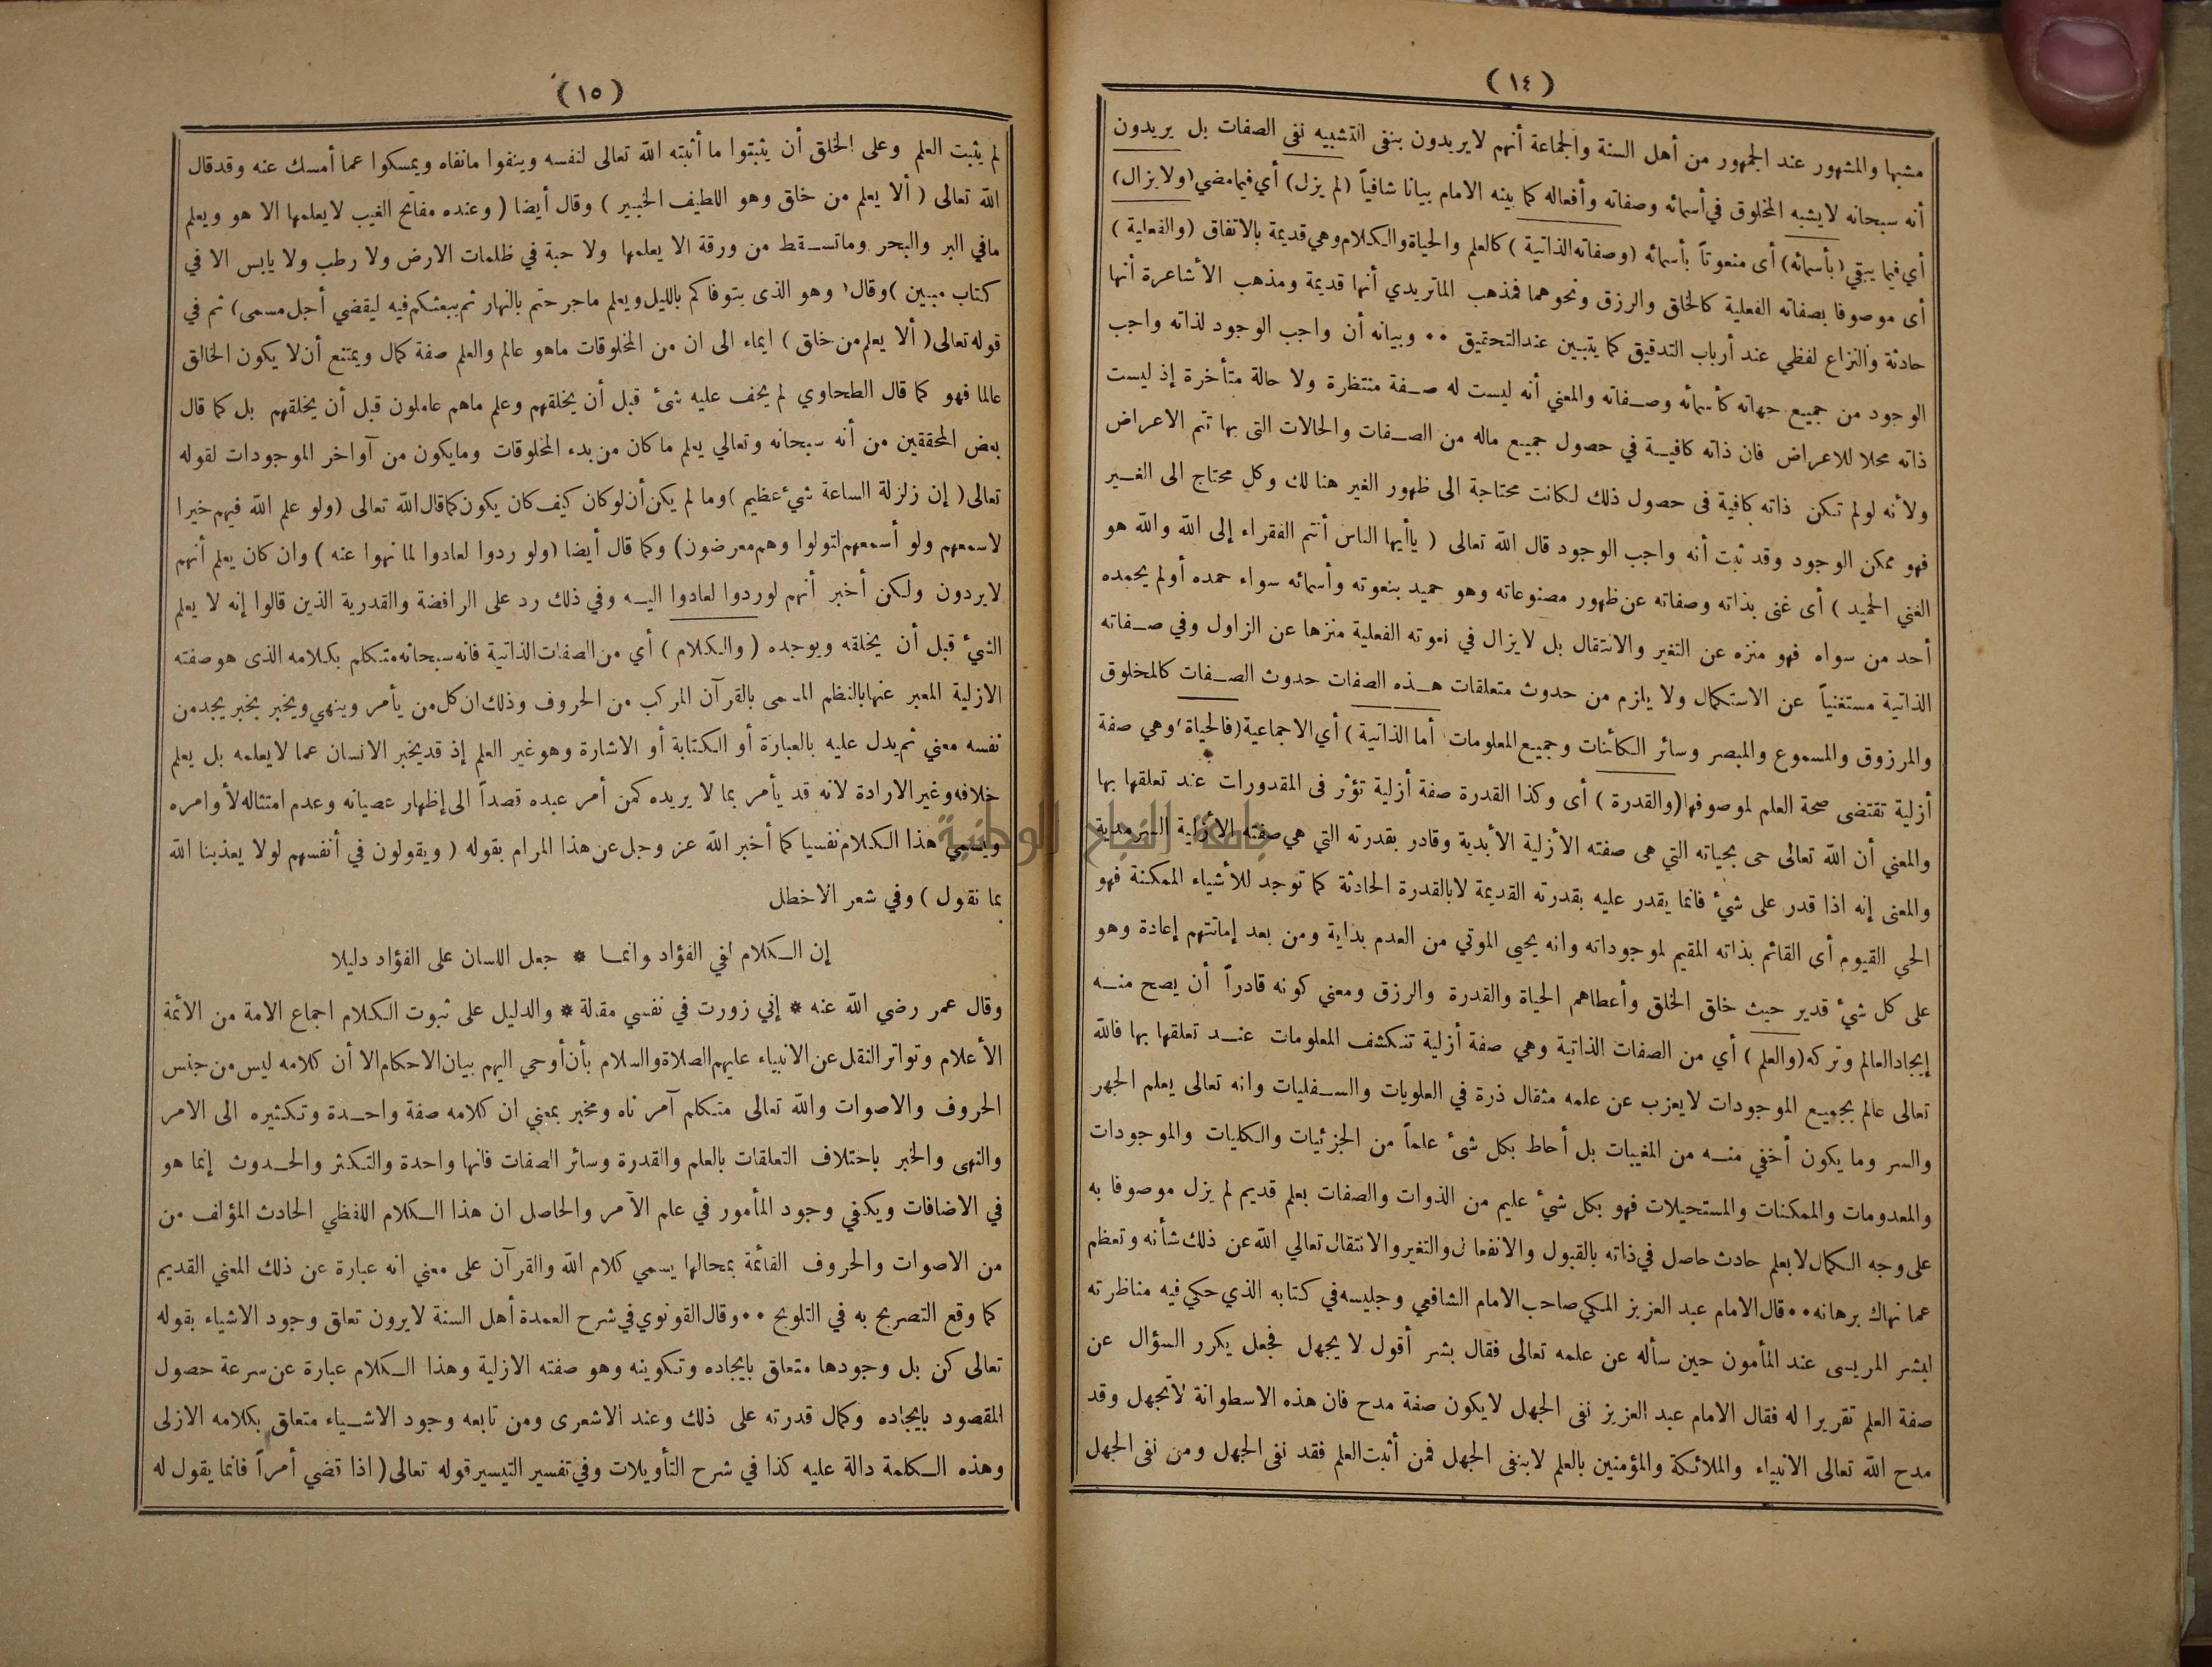 ( ١٤ )
مشبها والمشهور عند الجمهور من أهل السنة والجماعة أنهم لايريدون بنفى التشبيه نفى الصفات بل يريدون
أنه سبحانه لايشبه المخلوق في أسمائه وصفاته وأفعاله كما بينه الامام بيانا شافياً (لم يزل) أي فيما مضي (ولايزال)
أي فيما يبقي (بأسمائه) أى منعوتاً بأسمائه (وصفاته الذاتية) كالعلم والحياة والكلام وهي قديمة بالاتفاق (والفعلية)
أى موصوفا بصفاته الفعلية كالخلق والرزق ونحوهما فمذهب الماتريدي أنها قديمة ومذهب الأشاعرة أنها
حادثة والنزاع لفظي عند أرباب التدقيق كما يتبين عند التحقيق ٠٠ وبيانه أن واجب الوجود لذاته واجب
الوجود من جميع جهاته كأسمائه وصفاته والمعني أنه ليست له صفة منتظرة ولا حالة متأخرة إذ ليست
ذاته محلا للاعراض فان ذاته كافية في حصول جميع ماله من الصفات والحالات التى بها تتم الاعراض
ولأنه لولم تكن ذاته كافية فى حصول ذلك لكانت محتاجة الى ظهور الغير هنالك وكل محتاج الى الغير
فهو ممكن الوجود وقد ثبت أنه واجب الوجود قال الله تعالى ( ياأيها الناس أنتم الفقراء إلى الله والله هو
الغني الحميد ) أى غنى بذاته وصفاته عن ظهور مصنوعاته وهو حميد بنعوته وأسمائه سواء حمده أولم يحمده
أحد من سواه فهو منزه عن التغير والانتقال بل لايزال في نعوته الفعلية منزها عن الزوال وفي صفاته
الذاتية مستغنياً عن الاستكمال ولا يلزم من حدوث متعلقات هذه الصفات حدوث الصفات كالمخلوق
والمرزوق والمسموع والمبصر وسائر الكائنات وجميع المعلومات أما الذاتية ) أي الاجماعية (فالحياة) وهي صفة
أزلية تقتضى صحة العلم لموصوفها (والقدرة ) أى وكذا القدرة صفة أزلية تؤثر فى المقدورات عند تعلقها بها
والمعني أن الله تعالى حى بحياته التي هى صفته الأزلية الأبدية وقادر بقدرته التي هي صفته الأزلية السرمدية
والمعنى إنه اذا قدر على شئ فانما يقدر عليه بقدرته القديمة لابالقدرة الحادثة كما توجد للأشياء الممكنة فهو
الحي القيوم أي القائم بذاته المقيم لموجوداته وانه يحيى الموتي من العدم بداية ومن بعد إماتتهم إعادة وهو
على كل شئ قدير حيث خلق الخلق وأعطاهم الحياة والقدرة والرزق ومعني كونه قادراً أن يصح منه
إيجاد العالم وتركه (والعلم ) أي من الصفات الذاتية وهي صفة أزلية تنكشف المعلومات عند تعلقها بها فالله
تعالى عالم بجميع الموجودات لايعزب عن علمه مثقال ذرة في العلويات والسفليات وانه تعالى يعلم الجهر
والسر وما يكون أخفي منه من المغيبات بل أحاط بكل شئ علماً من الجزئيات والكليات والموجودات
والمعدومات والممكنات والمستحيلات فهو بكل شئ عليم من الذوات والصفات بعلم قديم لم يزل موصوفا به
على وجه الكمال لابعلم حادث حاصل في ذاته بالقبول والانفعال والتغير والانتقال تعالي الله عن ذلك شأنه وتعظم
عما نهاك برهانه ٠٠ قال الامام عبد العزيز المكي صاحب الامام الشافعي وجليسه في كتابه الذي حكي فيه مناظرته
لبشر المريسى عند المأمون حين سأله عن علمه تعالى فقال بشر أقول لا يجهل فجعل يكرر السؤال عن
صفة العلم تقريرا له فقال الامام عبد العزيز نفى الجهل لايكون صفة مدح فان هذه الاسطوانة لاتجهل وقد
مدح الله تعالى الانبياء والملائكة والمؤمنين بالعلم لابنفى الجهل فمن أثبت العلم فقد نفى الجهل ومن نفى الجهل
( ١٥ )
لم يثبت العلم وعلى الخلق أن يثبتوا ما أثبته الله تعالى لنفسه وينفوا مانفاه ويمسكوا عما أمسك عنه وقد قال
الله تعالى ( ألا يعلم من خلق وهو اللطيف الخبير ) وقال أيضا ( وعنده مفاتح الغيب لايعلمها الا هو ويعلم
مافي البر والبحر وماتسقط من ورقة الا يعلمها ولا حبة في ظلمات الارض ولا رطب ولا يابس الا في
كتاب مبين ) وقال ( وهو الذى يتوفاكم بالليل ويعلم ماجرحتم بالنهار ثم يبعثكم فيه ليقضي أجل مسمى) ثم في
قوله تعالى ( ألا يعلم من خلق ) ايماء الى ان من المخلوقات ماهو عالم والعلم صفة كمال ويمتنع أن لا يكون الخالق
عالما فهو كما قال الطحاوي لم يخف عليه شئ قبل أن يخلقهم وعلم ماهم عاملون قبل أن يخلقهم بل كما قال
بعض المحققين من أنه سبحانه وتعالي يعلم ماكان من بدء المخلوقات ومايكون من آواخر الموجودات لقوله
تعالى ( إن زلزلة الساعة شئ عظيم ) وما لم يكن أن لوكان كيف كان يكون كما قال الله تعالى (ولو علم الله فيهم خيرا
لاسمعهم ولو أسمعهم لتولوا وهم معرضون) وكما قال أيضا (ولو ردوا لعادوا لما نهوا عنه ) وان كان يعلم أنهم
لايردون ولكن أخبر أنهم لوردوا لعادوا اليه وفي ذلك رد على الرافضة والقدرية الذين قالوا إنه لا يعلم
الشئ قبل أن يخلقه ويوجده ( والكلام ) أي من الصفات الذاتية فانه سبحانه متكلم بكلامه الذى هو صفته
الازلية المعبر عنها بالنظم المسمى بالقرآن المركب من الحروف وذلك ان كل من يأمر وينهي ويخبر بخبر يجد من
نفسه معني ثم يدل عليه بالعبارة أو الكتابة أو الاشارة وهو غير العلم إذ قد يخبر الانسان عما لايعلمه بل يعلم
خلافه وغير الارادة لانه قد يأمر بما لا يريده كمن أمر عبده قصداً الى إظهار عصيانه وعدم امتثاله لأوامره
ويسمي هذا الكلام نفسيا كما أخبر الله عز وجل عن هذا المرام بقوله ( ويقولون في أنفسهم لولا يعذبنا الله
بما نقول ) وفي شعر الاخطل
إن الكلام لفي الفؤاد وانما * جعل اللسان على الفؤاد دليلا
وقال عمر رضي الله عنه * إني زورت في نفسي مقالة * والدليل على ثبوت الكلام اجماع الامة من الأئمة
الأعلام وتواتر النقل عن الانبياء عليهم الصلاة والسلام بأن أوحي اليهم بيان الاحكام الا أن كلامه ليس من جنس
الحروف والاصوات والله تعالى متكلم آمر ناه ومخبر بمعني ان كلامه صفة واحدة وتكثيره الى الامر
والنهى والخبر باختلاف التعلقات بالعلم والقدرة وسائر الصفات فانها واحدة والتكثر والحدوث إنما هو
في الاضافات ويكفي وجود المأمور في علم الآمر والحاصل ان هذا الكلام اللفظي الحادث المؤلف من
من الاصوات والحروف القائمة بمحالها يسمي كلام الله والقرآن على معني انه عبارة عن ذلك المعني القديم
كما وقع التصريح به في التلويح ٠٠ وقال القونوي في شرح العمدة أهل السنة لايرون تعلق وجود الاشياء بقوله
تعالى كن بل وجودها متعلق بايجاده وتكوينه وهو صفته الازلية وهذا الكلام عبارة عن سرعة حصول
المقصود بايجاده وكمال قدرته على ذلك وعند الاشعرى ومن تابعه وجود الاشياء متعلق بكلامه الازلى
وهذه الكلمة دالة عليه كذا في شرح التأويلات وفي تفسير التيسير قوله تعالى ( اذا قضي أمراً فانما يقول له
جامعة النجاح الوطنية